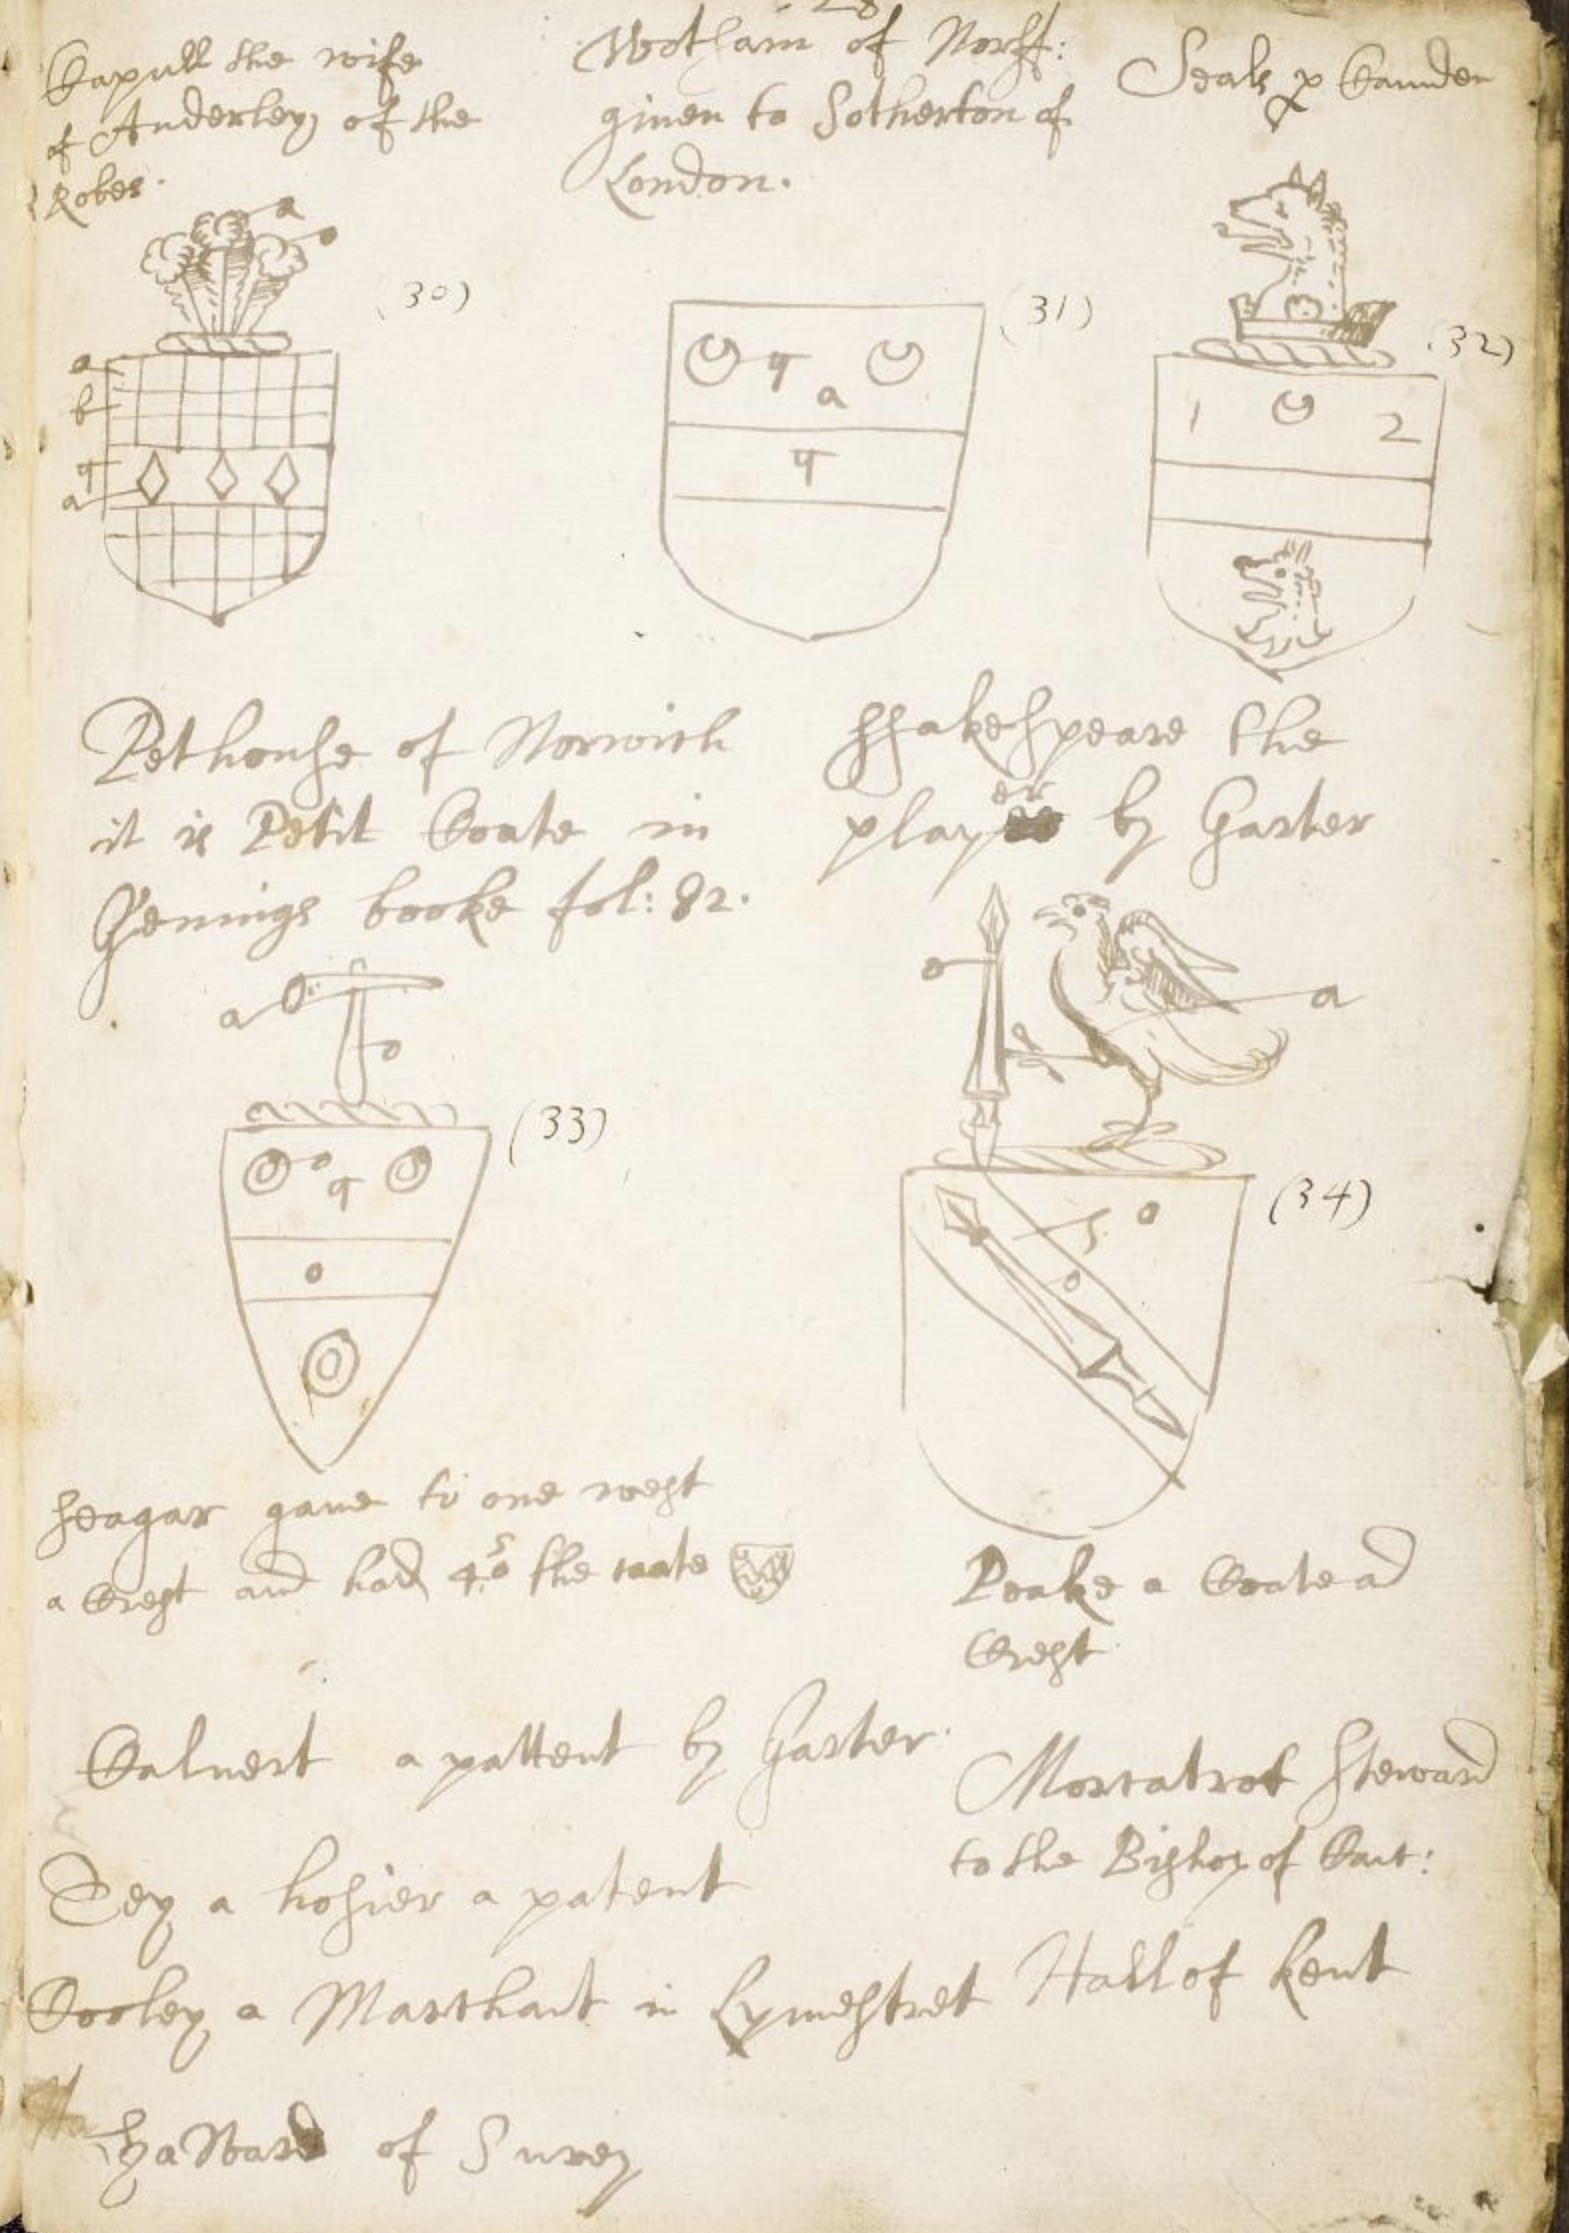 28
Capull the wife
of Anderley of the
Robes.
a
o
(30)
a
b
q
a
Wotham of Norff:
given to Sotherton of
London.
(31)
q
a
q
Seals p Camden
(32)
1 2
Pethouse of Norwich
it is Petit Coate in
Jennings booke fol: 82.
a
o
(33)
o
q
o
Shakespeare the
player by Garter
o
a
(34)
S o
o
Seagar gaue to one west
a Crest and had 4 the coate
Peake a Coate ad
Crest
Caluert a pattent by Garter.
Morcatrot Steward
to the Bishop of Cant:
Dey a hosier a patent
Cooley a Marchant in Lymestret
Hall of Kent
Haward of Surey